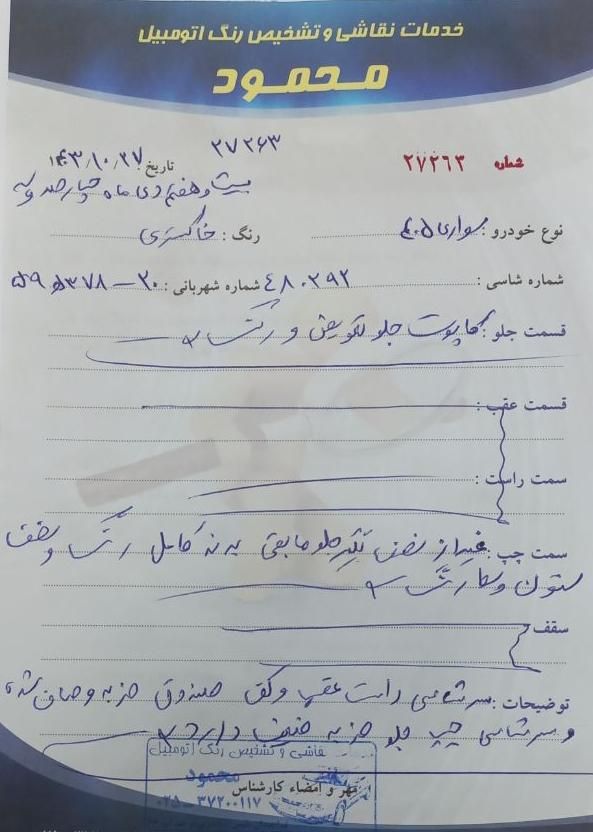 خدمات نقاشی و تشخیص رنگ اتومبیل
محمود
۲۷۲۶۳
شماره ۲۷۲۶۳
تاریخ: ۱۴۰۳/۱۰/۲۷
بیست و هفتم دی ماه و چهارصد و سه
نوع خودرو: سواری ۴۰۵ رنگ: خاکستری
شماره شاسی: ۴۸۰۲۹۲ شماره شهربانی: ۲۰ – ۵۹۵۳۷۸
قسمت جلو: کاپوت جلو تعویض و رنگ
قسمت عقب:
سمت راست:
سمت چپ: غیر از نصف گلگیر جلو مابقی بدنه کامل رنگ و نصف
ستون وسط رنگ
سقف:
توضیحات: سرشاسی راست عقب و کف صندوق ضربه و صاف شده
و سرشاسی چپ جلو ضربه خفیف دارد
نقاشی و تشخیص رنگ اتومبیل
محمود
مهر و امضاء کارشناس
۰۲۵-۳۷۲۰۰۱۱۷